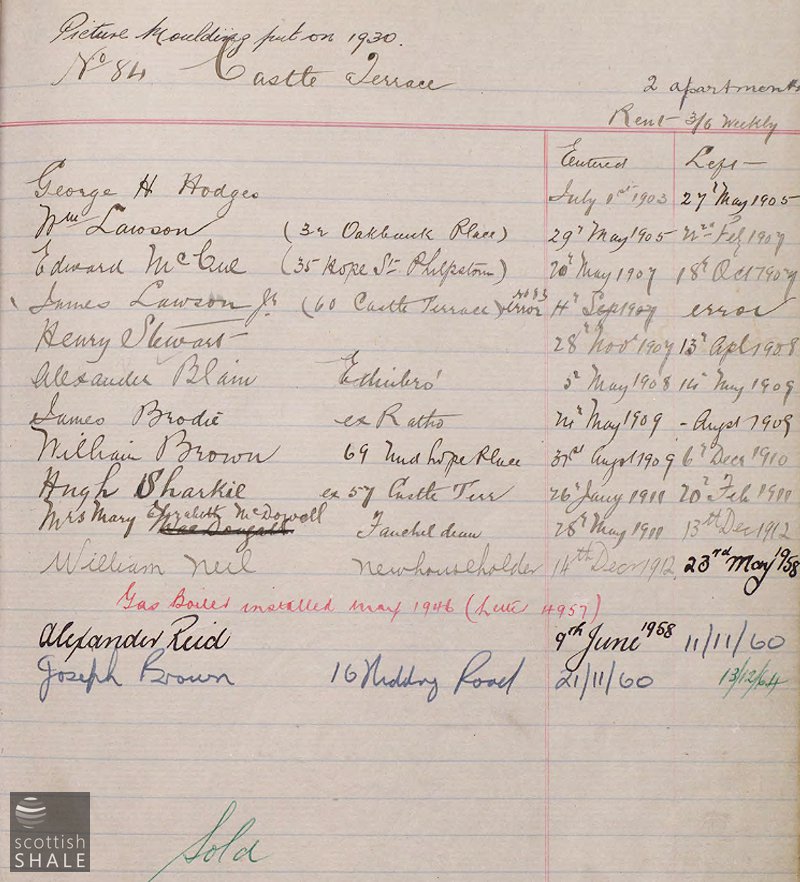 Picture Moulding put on 1930.
No 84 Castle Terrace
2 apartments
Rent 3/6 weekly
Entered Left
George H Hodges July 1st 1903 27th May 1905
Wm Lawson (32 Oakbank Place) 29th May 1905 22nd Feb 1907
Edward McCue (35 Hope St Philpstoun) 20th May 1907 18th Oct 1907
James Lawson Jr (60 Castle Terrace) No 83 error 4th Sep 1907 error
Henry Stewart 28th Novr 1907 13th Apl 1908
Alexander Blain Edinbro' 5th May 1908 14th May 1909
James Brodie ex Ratho 24th May 1909 - Augst 1909
William Brown 69 Midhope Place 31st Augst 1909 6th Decr 1910
Hugh Sharkie ex 57 Castle Terr 26th Jany 1911 20th Feb 1911
Mrs Mary Elizabeth McDowell MacDougall Faucheldean 28th May 1911 13th Dec 1912
William Neil newhouseholder 14th Decr 1912 23rd May 1958
Gas Boiler installed May 1946 (Lette 4957)
Alexander Reid 9th June 1958 11/11/60
Joseph Brown 16 Niddry Road 21/11/60 13/12/64
Sold
scottish
SHALE